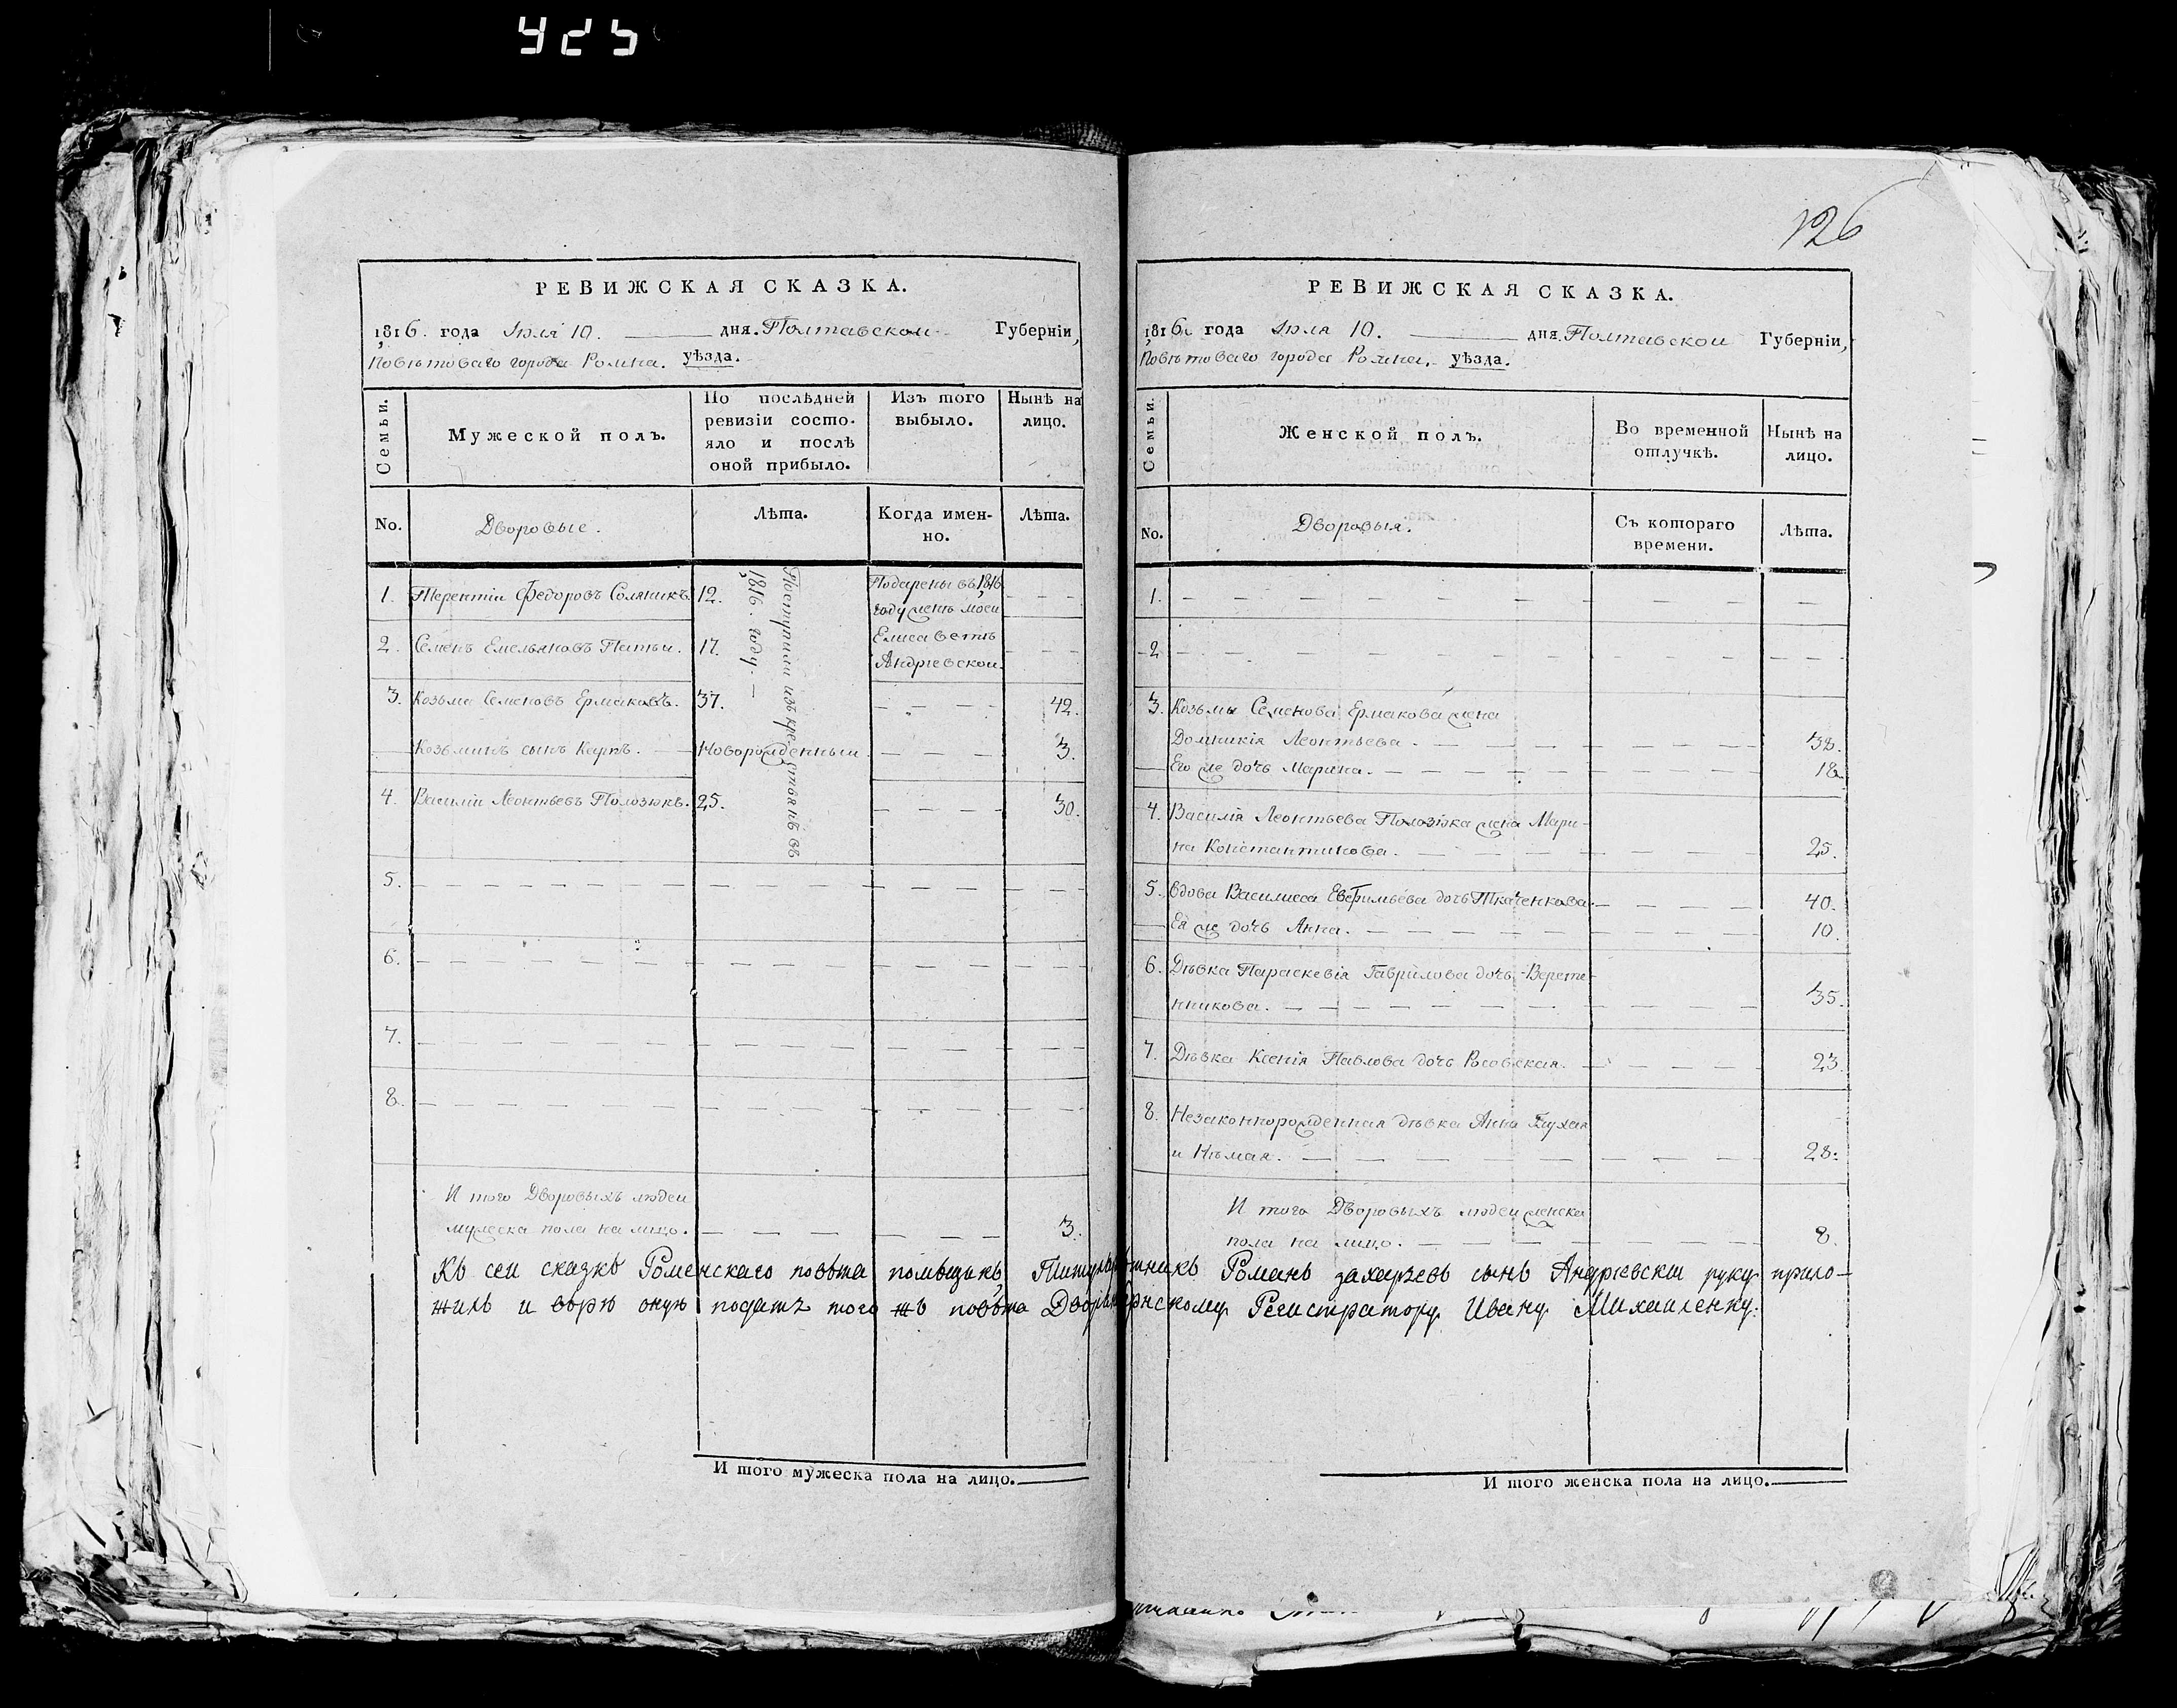 425
126
РЕВИЖСКАЯ СКАЗКА.
1816. года Іюля 10. дня. Полтавской Губерніи,
Повѣтоваго города Ромна. уѣзда.
Семьи.
Мужеской полъ.
По послѣдней
ревизіи состо-
яло и послѣ
оной прибыло.
Изъ того
выбыло.
Нынѣ на
лицо.
No.
Дворовые.
Лѣта.
Когда имен-
но.
Лѣта.
Поступили изъ крестьянъ въ
1816. году. —
1. Терентій Федоровъ Соляникъ. 12.
Подарены въ 1816
году женѣ моей
2. Семенъ Емельяновъ 17.
Елисаветѣ
Андріевской.
3. Козьма Семеновъ Ермаковъ. 37. 42.
Козьминъ сынъ Карпъ. Новорожденный 3.
4. Василій Леонтьевъ Полозюкъ. 25. 30.
5.
6.
7.
8.
И того Дворовыхъ людей
мужеска пола на лицо. 3.
И того мужеска пола на лицо.
РЕВИЖСКАЯ СКАЗКА.
1816. года Іюля 10. дня. Полтавской Губерніи,
Повѣтоваго города Ромна. уѣзда.
Семьи.
Женской полъ.
Во временной
отлучкѣ.
Нынѣ на
лицо.
No.
Дворовыя.
Съ котораго
времени.
Лѣта.
1.
2
3. Козьмы Семенова Ермакова жена
Домникія Леонтьева. 38.
Его же дочь Марина. 18
4. Василія Леонтьева Полозюка жена Мари-
на Константинова. 25.
5. Вдова Василиса дочь Ткаченкова 40.
Ея же дочь Анна. 10.
6. Дѣвка Параскевія Гаврилова дочь Верете-
нникова. 35.
7. Дѣвка Ксенія Павлова дочь Росовская. 23.
8. Незаконнорожденная дѣвка Анна Глухая
и Нѣмая. 28.
И того Дворовыхъ людей женска
пола на лицо. 8.
Къ сей сказкѣ Роменскаго повѣта помѣщикъ Романъ Захарѣевъ сынъ Андріевскій руку прило-
жилъ и вѣрю оную подать того жъ повѣта Регистратору Ивану Михайленку.
И того женска пола на лицо.